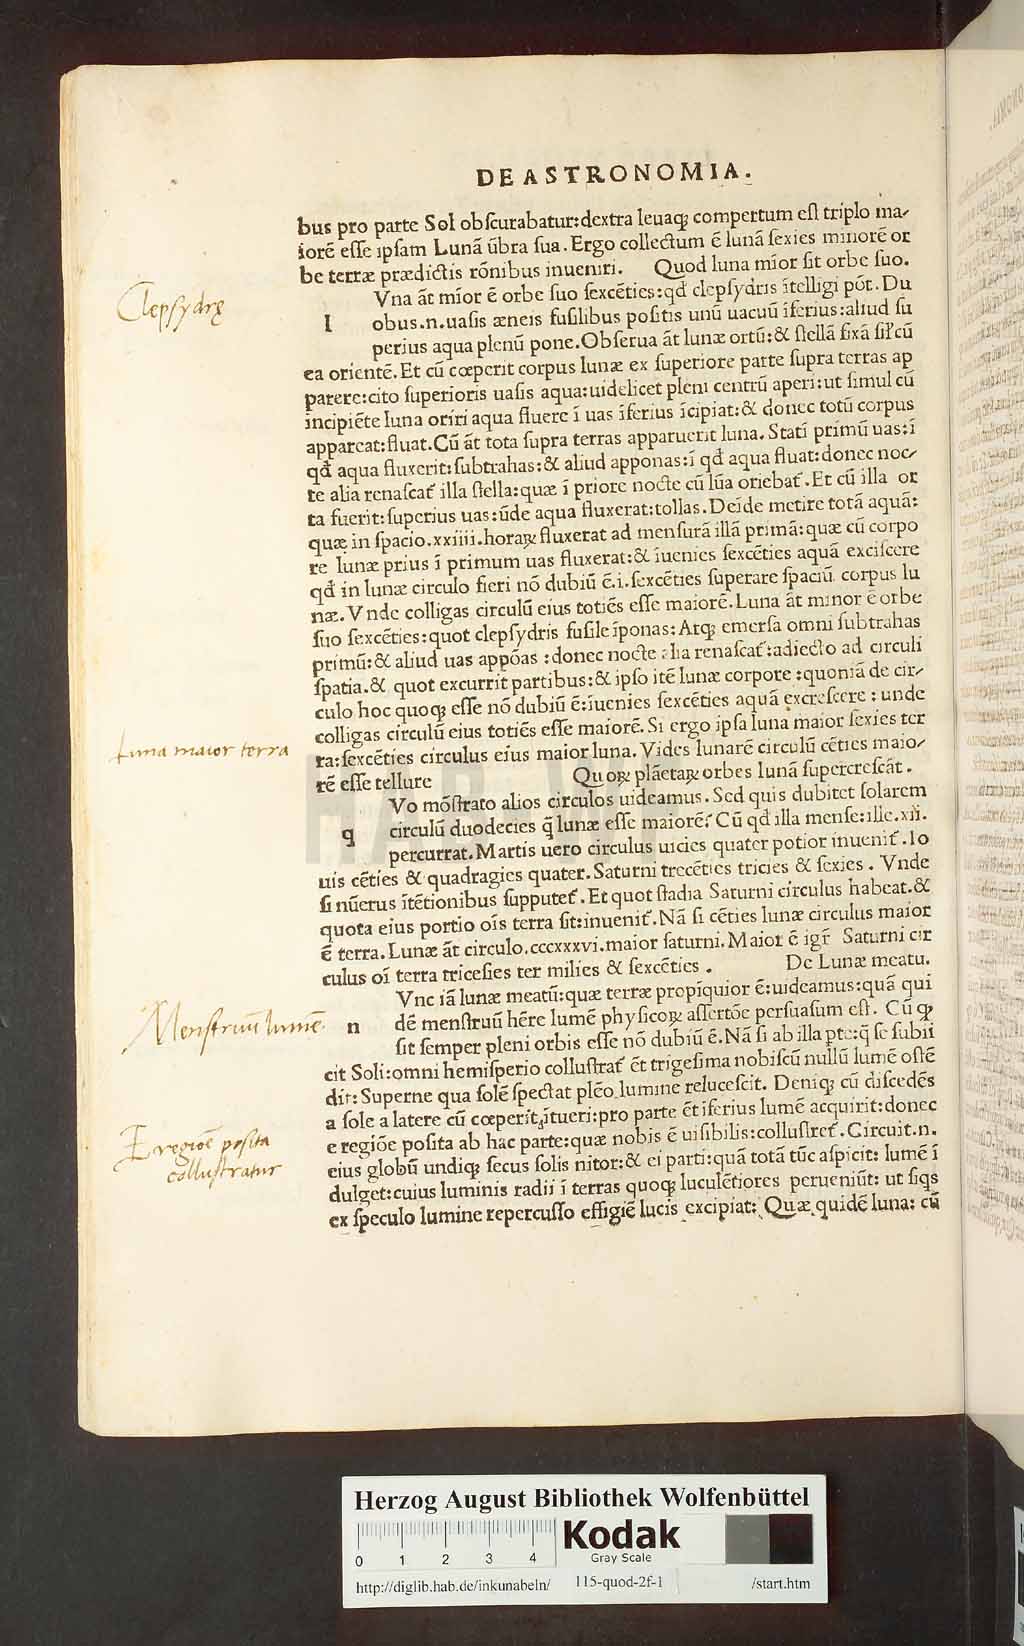 DE ASTRONOMIA.
bus pro parte Sol obscurabatur:dextra leuaq; compertum est triplo ma/
iorē esse ipsam Lunā ūbra sua. Ergo collectum ē lunā sexies minorē or
be terræ prædictis rōnibus inueniri. Quod luna mīor sit orbe suo.
Clepsydrę
Vna āt mīor ē orbe suo sexcēties:qđ clepsydris ītelligi pōt. Du
l obus.n.uasis æneis fusilibus positis unū uacuū īferius:aliud su
perius aqua plenū pone.Obserua āt lunæ ortū:& stellā fixā sił cū
ea orientē. Et cū cœperit corpus lunæ ex superiore parte supra terras ap
parere:cito superioris uasis aqua:uidelicet pleni centrū aperi:ut simul cū
incipiēte luna oriri aqua fluere ī uas īferius īcipiat:& donec totū corpus
appareat:fluat.Cū āt tota supra terras apparuerit luna. Statī primū uas:ī
qđ aqua fluxerit:subtrahas:& aliud apponas:ī qđ aqua fluat:donec noc/
te alia renascat illa stella:quæ ī priore nocte cū lūa oriebat. Et cū illa or
ta fuerit:superius uas:ūde aqua fluxerat:tollas. Deīde metire totā aquā:
quæ in spacio.xxiiii.horaꝝ fluxerat ad mensurā illā primā:quæ cū corpo
re lunæ prius ī primum uas fluxerat:& īuenies sexcēties aquā exciscere
qđ in lunæ circulo fieri nō dubiū ē.i.sexcēties superare spaciū corpus lu
næ. Vnde colligas circulū eius totiēs esse maiorē. Luna āt minor ē orbe
suo sexcēties:quot clepsydris fusile īponas: Atq; emersa omni subtrahas
primū:& aliud uas appōas :donec nocte alia renascat:adiecto ad circuli
spatia.& quot excurrit partibus:& ipso itē lunæ corpore :quoniā de cir/
culo hoc quoq; esse nō dubiū ē:īuenies sexcēties aquā excrescere : unde
colligas circulū eius totiēs esse maiorē. Si ergo ipsa luna maior sexies ter
Luna maior terra
ra:sexcēties circulus eius maior luna. Vides lunarē circulū cēties maio/
rē esse tellure Quoꝝ plāetaꝝ orbes lunā supercrescāt.
Vo mōstrato alios circulos uideamus. Sed quis dubitet solarem
q circulū duodecies q̄ lunæ esse maiorē? Cū qđ illa mense:ille.xii.
percurrat. Martis uero circulus uicies quater potior inuenit. Io
uis cēties & quadragies quater. Saturni trecēties tricies & sexies . Vnde
si nūerus ītētionibus supputet. Et quot stadia Saturni circulus habeat.&
quota eius portio oīs terra sit:inuenit. Nā si cēties lunæ circulus maior
ē terra. Lunæ āt circulo.cccxxxvi.maior saturni. Maior ē igr̄ Saturni cir
culus oī terra tricesies ter milies & sexcēties . De Lunæ meatu.
Vnc iā lunæ meatū:quæ terræ propiquior ē:uideamus:quā qui
Menstruū lumē.
n dē menstruū hēre lumē physicoꝝ assertōe persuasum est. Cū ꝙ
sit semper pleni orbis esse nō dubiū ē. Nā si ab illa pte:q̄ se subii
cit Soli:omni hemisperio collustrat ēt trigesima nobiscū nullū lumē ostē
dit: Superne qua solē spectat plēo lumine relucescit. Deniq; cū discedēs
a sole a latere cū cœperit ītueri:pro parte ēt iferius lumē acquirit:donec
E regiōe posita
collustratur
e regiōe posita ab hac parte:quæ nobis ē uisibilis:collustret. Circuit.n.
eius globū undiq; secus solis nitor:& ei parti:quā totā tūc aspicit: lumē ī
dulget:cuius luminis radii ī terras quoq; luculētiores perueniūt: ut siqs
ex speculo lumine repercusso effigiē lucis excipiat: Quæ quidē luna: cū
HAB-WF
Herzog August Bibliothek Wolfenbüttel
0 1 2 3 4
Kodak
Gray Scale
http://diglib.hab.de/inkunabeln/ 115-quod-2f-1 /start.htm